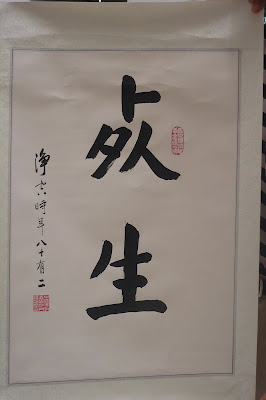 死生
淨空時年八十有二